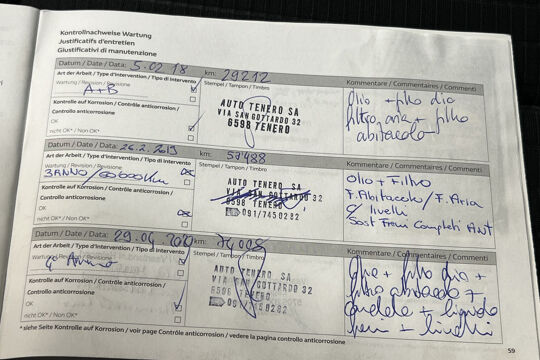 Kontrollnachweise Wartung
Justificatifs d'entretien
Giustificativi di manutenzione
Datum / Date / Data: 5.02.18 km: 29212 Kommentare / Commentaires / Commenti
Art der Arbeit / Type d'intervention / Tipo di intervento
Wartung / Révision / Revisione
A+B
Stempel / Tampon / Timbro
AUTO TENERO SA
VIA SAN GOTTARDO 32
6598 TENERO
Olio + filtro olio
filtro aria + filtro
abitacolo
Kontrolle auf Korrosion / Contrôle anticorrosion /
Controllo anticorrosione
OK
nicht OK* / Not OK*
Datum / Date / Data: 26.2.2019 km: 57488 Kommentare / Commentaires / Commenti
Art der Arbeit / Type d'intervention / Tipo di intervento
Wartung / Révision / Revisione
3 ANNO / 60000 km
Stempel / Tampon / Timbro
AUTO TENERO SA
VIA SAN GOTTARDO 32
6598 TENERO
091/7450282
Olio + Filtro
F. Abitacolo / F. Aria
livelli
Sost Freni Completi Ant
Kontrolle auf Korrosion / Contrôle anticorrosion /
Controllo anticorrosione
OK
nicht OK* / Not OK*
Datum / Date / Data: 29.04 km: 74008 Kommentare / Commentaires / Commenti
Art der Arbeit / Type d'intervention / Tipo di intervento
Wartung / Révision / Revisione
Stempel / Tampon / Timbro
AUTO TENERO SA
VIA SAN GOTTARDO 32
6598 TENERO
Olio + filtro olio +
filtro abitacolo +
candele + liquido
freni + livelli
Kontrolle auf Korrosion / Contrôle anticorrosion /
Controllo anticorrosione
OK
nicht OK* / Not OK*
* siehe Seite Kontrolle auf Korrosion / voir page Contrôle anticorrosion / vedere la pagina controllo anticorrosione
59